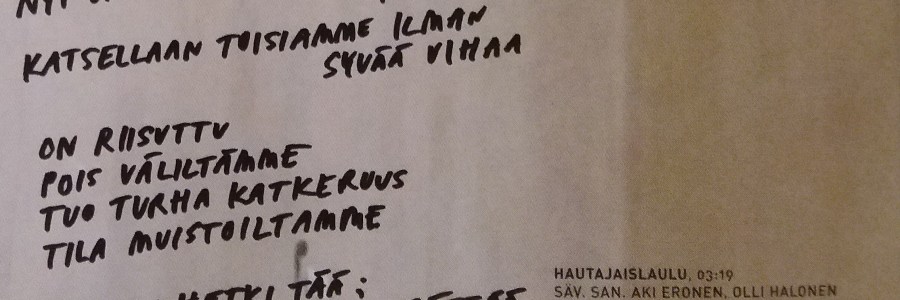 KATSELLAAN TOISIAMME ILMAN
SYVÄÄ VIHAA
ON RIISUTTU
POIS VÄLILTÄMME
TUO TURHA KATKERUUS
TILA MUISTOILTAMME
HETKI TÄÄ;
HAUTAJAISLAULU, 03:19
SÄV. SAN. AKI ERONEN, OLLI HALONEN